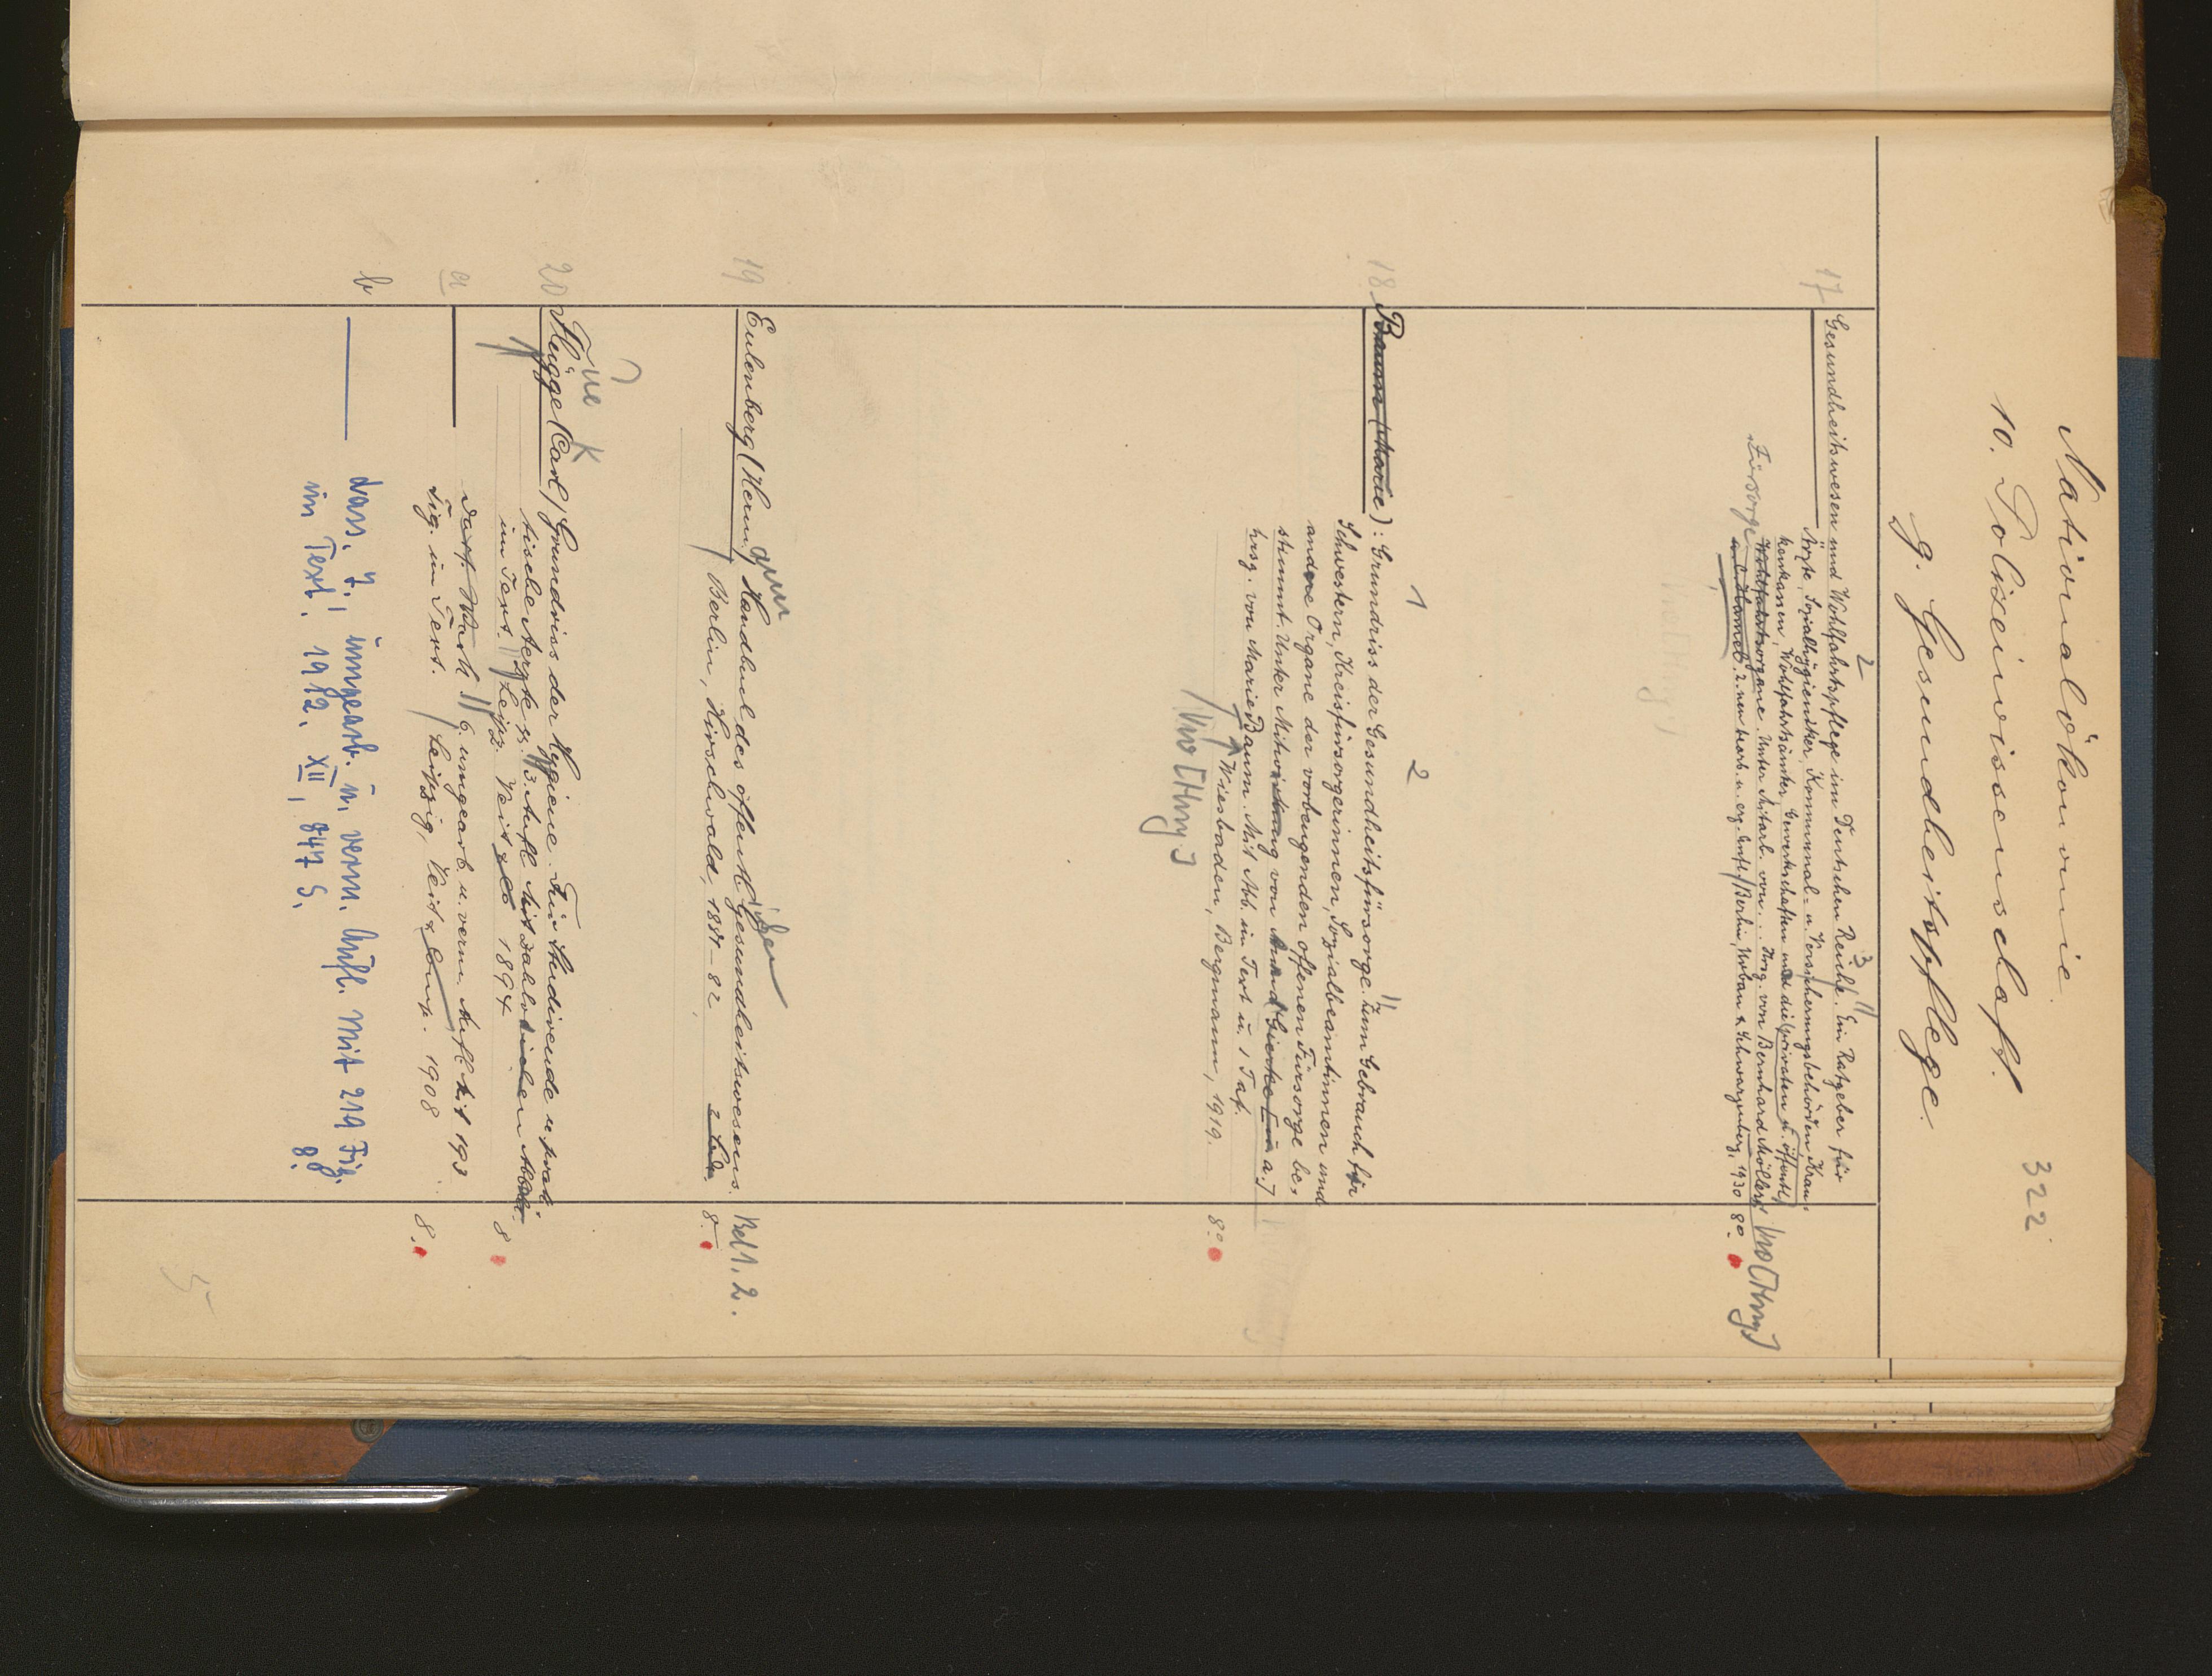 322
Nationalökonomie.
10. Polizeiwissenschaft.
g. Gesundheitspflege.
2 3
17 Gesundheitswesen und Wohlfahrtspflege im Deutschen Reiche. Ein Ratgeber für
Ärzte, Sozialhygieniker, Kommunal- u. Versicherungsbehörden, Kran-
kenkassen, Wohlfahrtsämter, Gewerkschaften und die privaten u. öffentl.
Fürsorge Wohlfahrtsorgane. Unter Mitarb. von ... Hrsg. von Bernhard Möllers
2. neu bearb. u. erg. Aufl. Berlin, Urban & Schwarzenberg, 1930 8°.
1 2
18. Baum (Marie): Grundriss der Gesundheitsfürsorge. Zum Gebrauch für
Schwestern, Kreisfürsorgerinnen, Sozialbeamtinnen und
andere Organe der vorbeugenden offenen Fürsorge be-
stimmt. Unter Mitwirkung von [u. a.]
hrsg. von Marie Baum. Mit Abb. im Text u. 1 Taf.
Wiesbaden, Bergmann, 1919. 8°.
19 Eulenberg (Hermann) Handbuch des öffentlichen Gesundheitswesens. Bd 1. 2.
Berlin, Hirschwald, 1881-82 2 Bde 8.
Flü K
20 Flügge (Carl) Grundriss der Hygiene. Für Studirende u. prak-
tische Aerzte 3. Aufl. Mit zahlreichen Abb.
im Text. Leipz. Veit & Co 1894 8
a — dass. Werk 6. umgearb. u. verm. Aufl. Mit 193
Fig. im Text. Leipzig, Veit & Comp. 1908 8.
b — dass. 7. umgearb. u. verm. Aufl. Mit 219 Fig.
im Text. 1912. XII, 847 S. 8°.